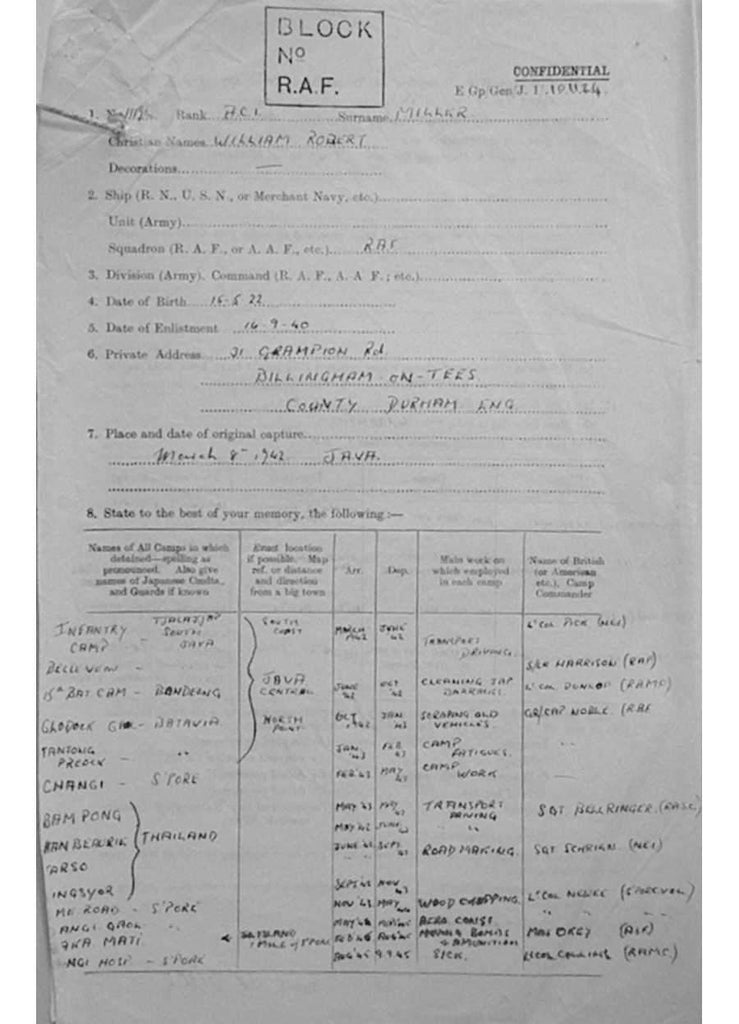 BLOCK
Nº
R.A.F.
CONFIDENTIAL
E Gp/Gen/J. 1
1. No. Rank A.C.1. Surname MILLER
Christian Names WILLIAM ROBERT
Decorations —
2. Ship (R. N., U. S. N., or Merchant Navy, etc.)
Unit (Army)
Squadron (R. A. F., or A. A. F., etc.) RAF
3. Division (Army). Command (R. A. F., A. A. F.; etc.)
4. Date of Birth 5 22
5. Date of Enlistment 9-40
6. Private Address 21 GRAMPION Rd.
BILLINGHAM ON-TEES
COUNTY DURHAM ENG
7. Place and date of original capture
March 8th 1942 JAVA.
8. State to the best of your memory, the following:—
Names of All Camps in which detained—spelling as pronounced. Also give names of Japanese Cmdts., and Guards if known
Exact location if possible. Map ref. or distance and direction from a big town
Arr.
Dep.
Main work on which employed in each camp
Name of British (or American etc.), Camp Commander
INFANTRY CAMP TJALATJAP SOUTH JAVA SOUTH COAST MARCH 1942 JUNE 42 TRANSPORT DRIVING. Lt COL PICK (NEI)
S/LR HARRISON (RAF)
BAT CAM - BANDENG JAVA CENTRAL JUNE 42 OCT 42 CLEANING JAP BARRACKS. Lt COL DUNLOP (RAMC)
GLODOCK - BATAVIA NORTH POINT OCT 1942 JAN 43 SCRAPING OLD VEHICLES. GR/CAP NOBLE.
TANTONG PREOCK - " JAN 43 FEB 43 CAMP FATIGUES. "
CHANGI - S'PORE FEB 43 MAY 43 CAMP WORK —
BAM PONG MAY 43 TRANSPORT DRIVING SGT BELLRINGER. (RASC)
THAILAND
TARSO JUNE ROAD MAKING. SGT (NEI)
NOV 43
ROAD - S'PORE NOV 43 MAY WOOD CHOPPING. Lt COL (S'POREVOL)
ANGI GAOL " MAY AERO CONST. " "
MATI ISLAND 1 MILE of S'PORE FEB 45 AUG 45 MOVING BOMBS & AMUNITION MAJ OKEY (AIF)
NGI HOSP - S'PORE AUG 45 9.9.45 SICK. COLLINS (RAMC)